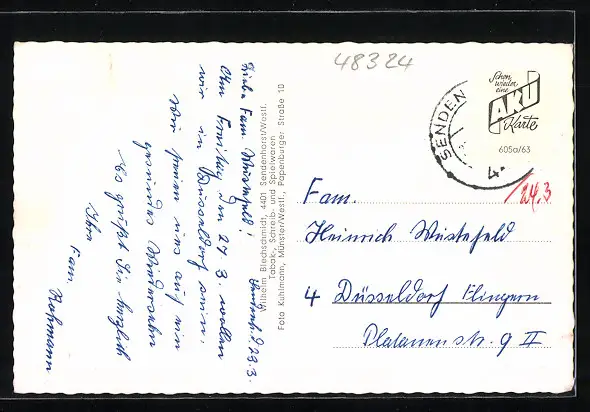 48324
Liebe Fam. Westefeld!
Am Freitag, den 24. 3. wollen
wir in Düsseldorf sein.
Wir freuen uns auf ein
gesundes Wiedersehen
Es grüßt Sie herzlich
Ihre
Fam. Rohmann
23.3.
Wilhelm Blechschmidt, 4401 Sendenhorst/Westf.
Tabak-, Schreib- und Spielwaren
Foto Kühlmann, Münster/Westf., Papenburger Straße 10
SENDEN
4
Schon
wieder
eine
AKU
Karte
605a/63
24.3
Fam.
Heinrich Westefeld
4 Düsseldorf Flingern
Platanenstr. 9 II